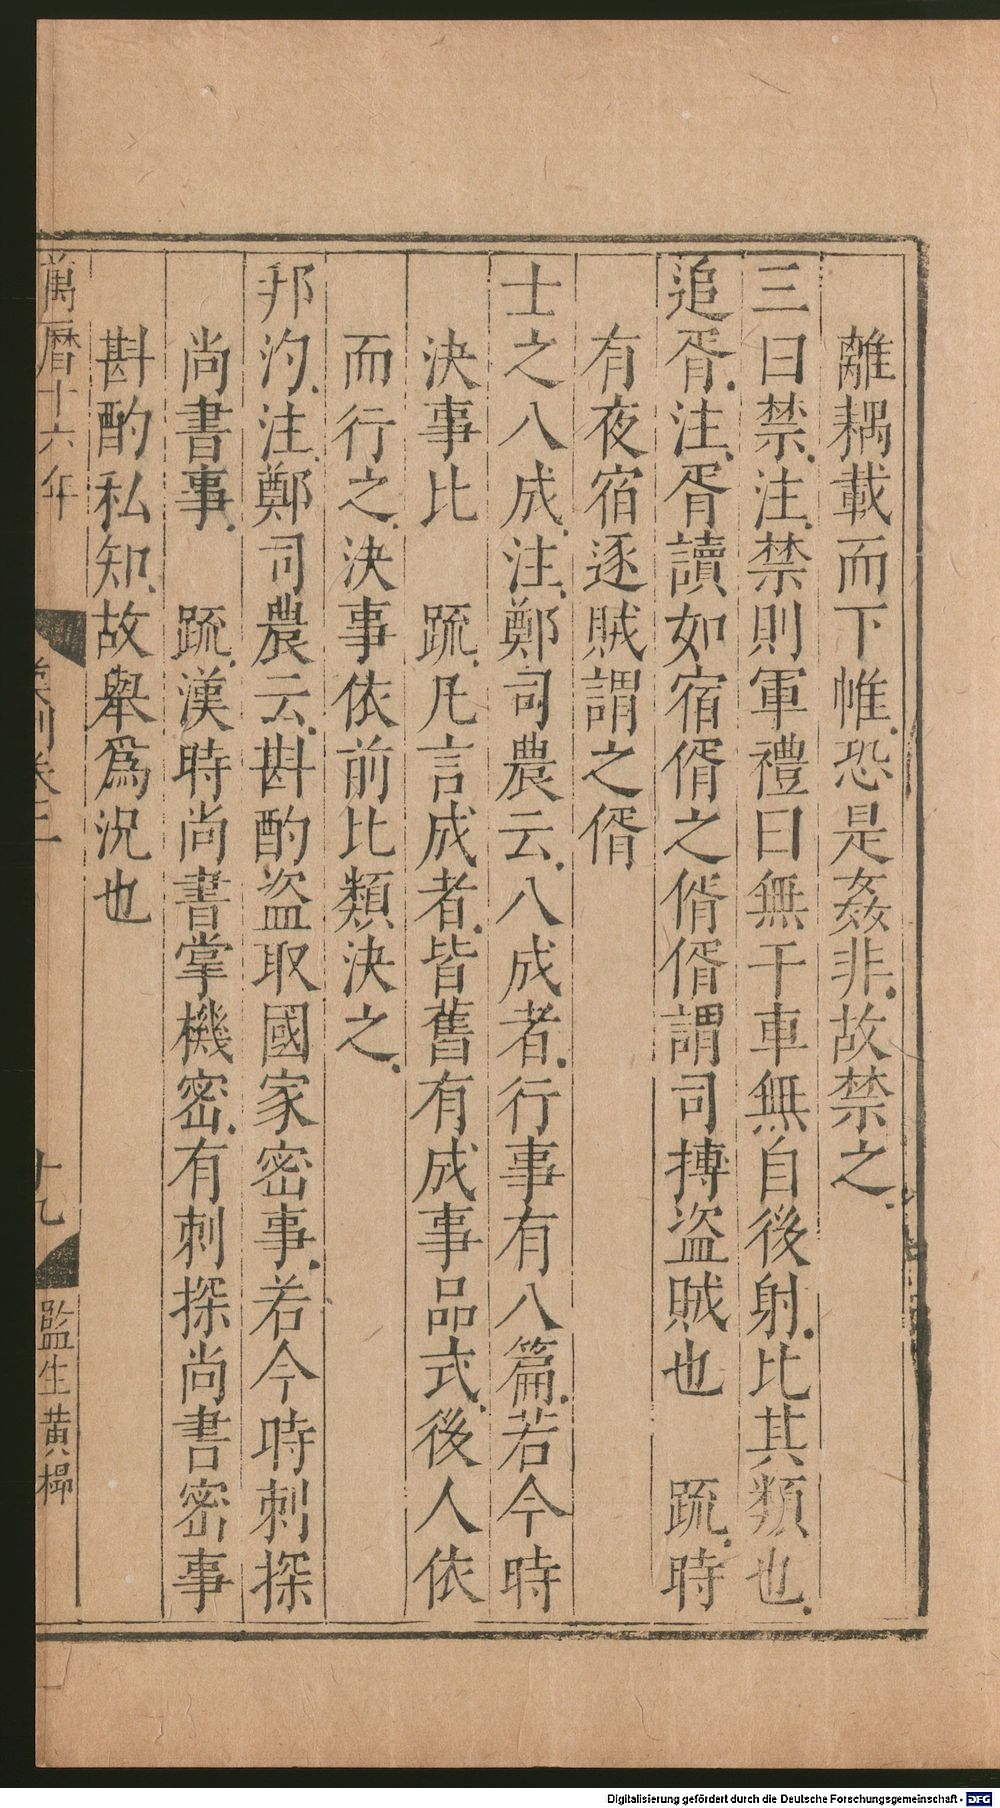 離耦載而下帷恐是姦非故禁之
三曰禁注禁則軍禮曰無干車無自後射比其類也
追胥注胥讀如宿偦之偦偦謂司搏盜賊也　疏時
有夜宿逐賊謂之偦
士之八成注鄭司農云八成者行事有八篇若今時
決事比　疏凡言成者皆舊有成事品式後人依
而行之決事依前比類決之
邦汋注鄭司農云斟酌盜取國家密事若今時刺探
尚書事　疏漢時尚書掌機密有刺探尚書密事
斟酌私知故舉爲況也
萬曆十六年
十九
監生黃
Digitalisierung gefördert durch die Deutsche Forschungsgemeinschaft - DFG